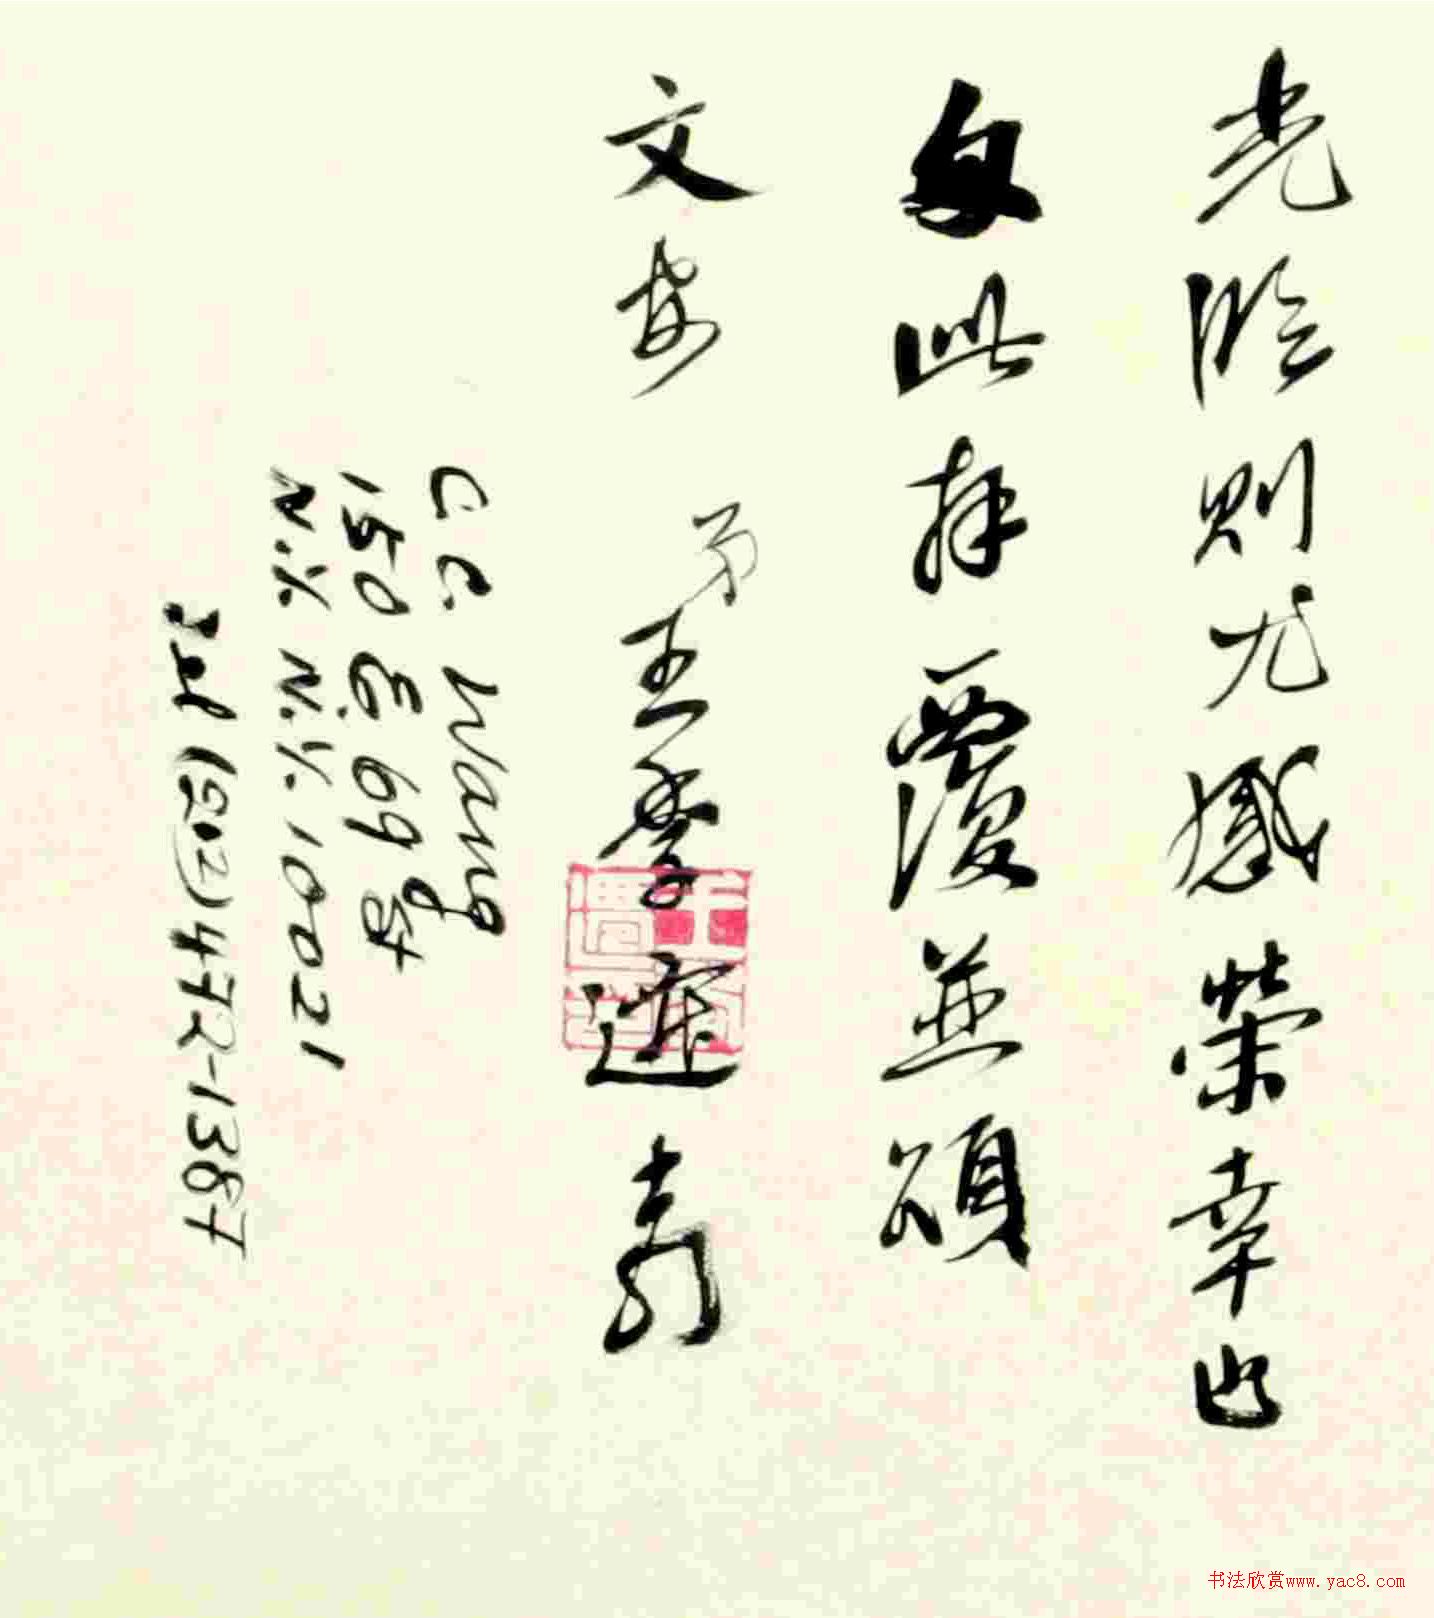 光臨則尤感榮幸也
此拜覆並頌
文安
弟王季遷
C. C. Wang
150 E. 69 St
N.Y. N.Y. 10021
Tel (212) 472-1387
书法欣赏www.yac8.com